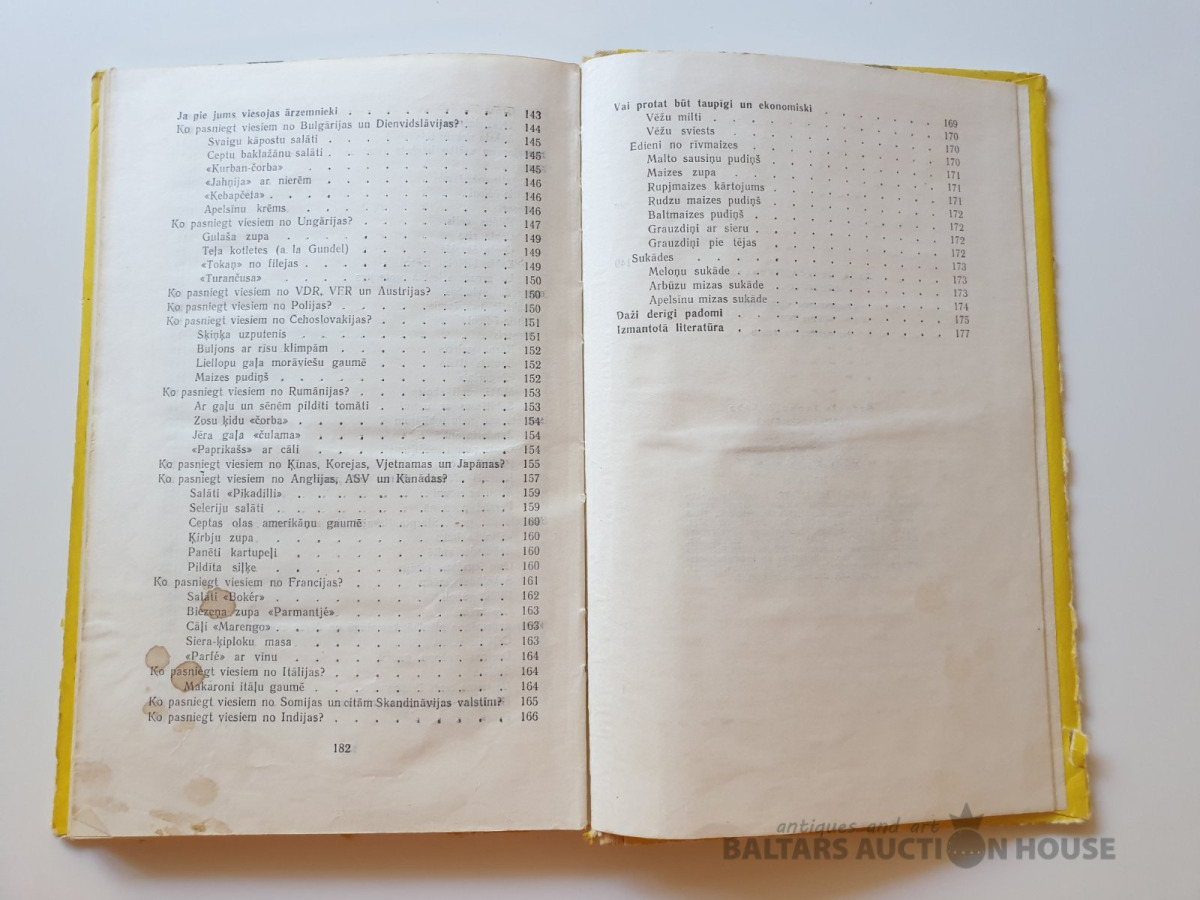 Ja pie jums viesojas ārzemnieki . . . . . . . . . 143
Ko pasniegt viesiem no Bulgārijas un Dienvidslāvijas? . . . 144
Svaigu kāpostu salāti . . . . . . . . . . 145
Ceptu baklažānu salāti . . . . . . . . . . 145
«Kurban-čorba» . . . . . . . . . . . 145
«Jahņija» ar nierēm . . . . . . . . . . 146
«Kebapčeta» . . . . . . . . . . . . 146
Apelsīnu krēms . . . . . . . . . . . 146
Ko pasniegt viesiem no Ungārijas? . . . . . . . . 147
Gulaša zupa . . . . . . . . . . . . 149
Teļa kotletes (a. la Gundel) . . . . . . . . 149
«Tokaņ» no filejas . . . . . . . . . . 149
«Turančusa» . . . . . . . . . . . . 150
Ko pasniegt viesiem no VDR, VFR un Austrijas? . . . . . 150
Ko pasniegt viesiem no Polijas? . . . . . . . . . 150
Ko pasniegt viesiem no Čehoslovakijas? . . . . . . . 151
Šķiņķa uzputenis . . . . . . . . . . . 151
Buljons ar rīsu klimpām . . . . . . . . . 152
Liellopu gaļa morāviešu gaumē . . . . . . . 152
Maizes pudiņš . . . . . . . . . . . . 152
Ko pasniegt viesiem no Rumānijas? . . . . . . . . 153
Ar gaļu un sēnēm pildīti tomāti . . . . . . . 153
Zosu ķidu «čorba» . . . . . . . . . . 154
Jēra gaļa «čulama» . . . . . . . . . . 154
«Paprikašs» ar cāli . . . . . . . . . . 154
Ko pasniegt viesiem no Ķīnas, Korejas, Vjetnamas un Japānas? 155
Ko pasniegt viesiem no Anglijas, ASV un Kanādas? . . . 157
Salāti «Pikadilli» . . . . . . . . . . . 159
Seleriju salāti . . . . . . . . . . . . 159
Ceptas olas amerikāņu gaumē . . . . . . . 160
Ķirbju zupa . . . . . . . . . . . . 160
Panēti kartupeļi . . . . . . . . . . . 160
Pildīta siļķe . . . . . . . . . . . . 160
Ko pasniegt viesiem no Francijas? . . . . . . . . 161
Salāti «Bokēr» . . . . . . . . . . . . 162
Biezeņa zupa «Parmantjē» . . . . . . . . . 163
Cāļi «Marengo» . . . . . . . . . . . . 163
Siera-ķiploku masa . . . . . . . . . . 163
«Parfē» ar vīnu . . . . . . . . . . . 164
Ko pasniegt viesiem no Itālijas? . . . . . . . . . 164
Makaroni itāļu gaumē . . . . . . . . . . 164
Ko pasniegt viesiem no Somijas un citām Skandināvijas valstīm? 165
Ko pasniegt viesiem no Indijas? . . . . . . . . . 166
182
Vai protat būt taupīgi un ekonomiski
Vēžu milti . . . . . . . . . . . . 169
Vēžu sviests . . . . . . . . . . . 170
Ēdieni no rīvmaizes . . . . . . . . . . 170
Malto sausiņu pudiņš . . . . . . . . . 170
Maizes zupa . . . . . . . . . . . 171
Rupjmaizes kārtojums . . . . . . . . . 171
Rudzu maizes pudiņš . . . . . . . . . 171
Baltmaizes pudiņš . . . . . . . . . . 172
Grauzdiņi ar sieru . . . . . . . . . . 172
Grauzdiņi pie tējas . . . . . . . . . . 172
Sukādes . . . . . . . . . . . . . 173
Meloņu sukāde . . . . . . . . . . . 173
Arbūzu mizas sukāde . . . . . . . . . 173
Apelsīnu mizas sukāde . . . . . . . . 174
Daži derīgi padomi . . . . . . . . . . 175
Izmantotā literatūra . . . . . . . . . . 177
antiques and art
BALTARS AUCTION HOUSE